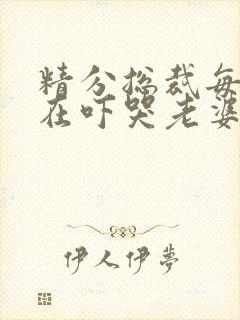 精分总裁每
在吓哭老婆
伊人伊梦